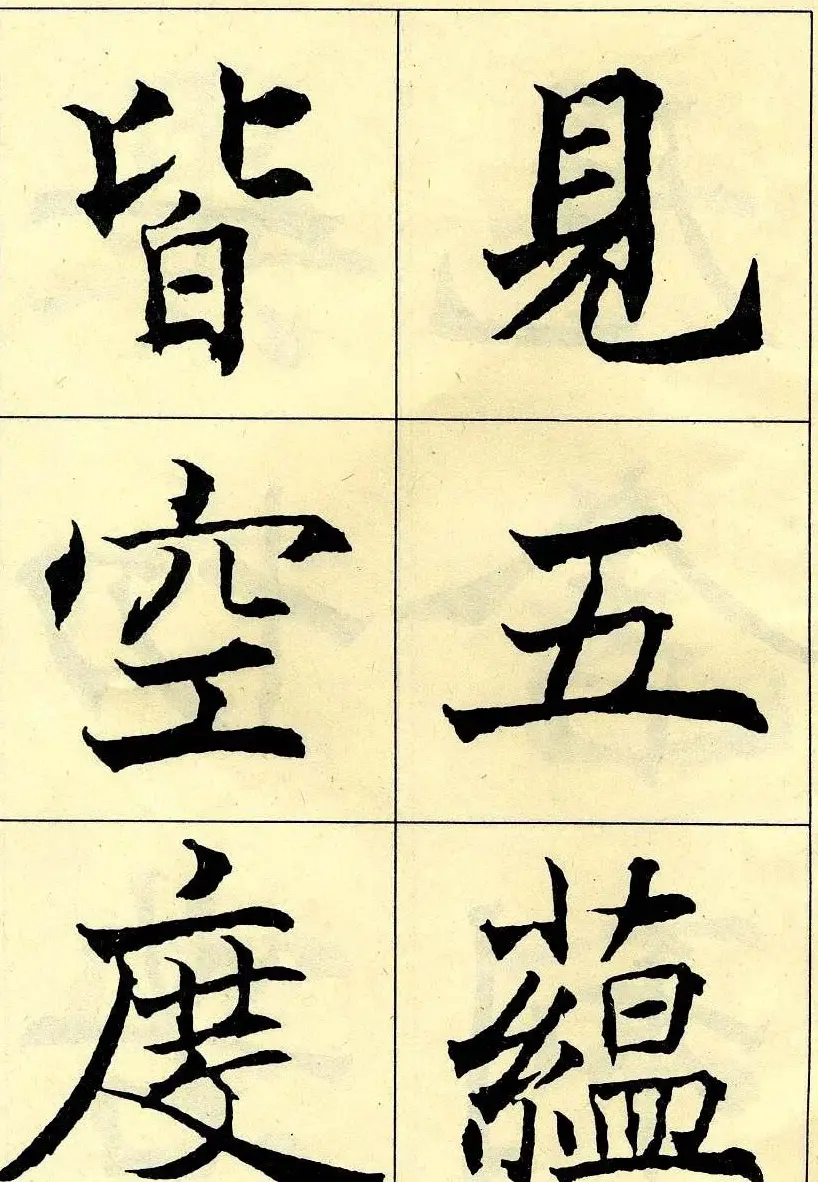 見五蘊
皆空度